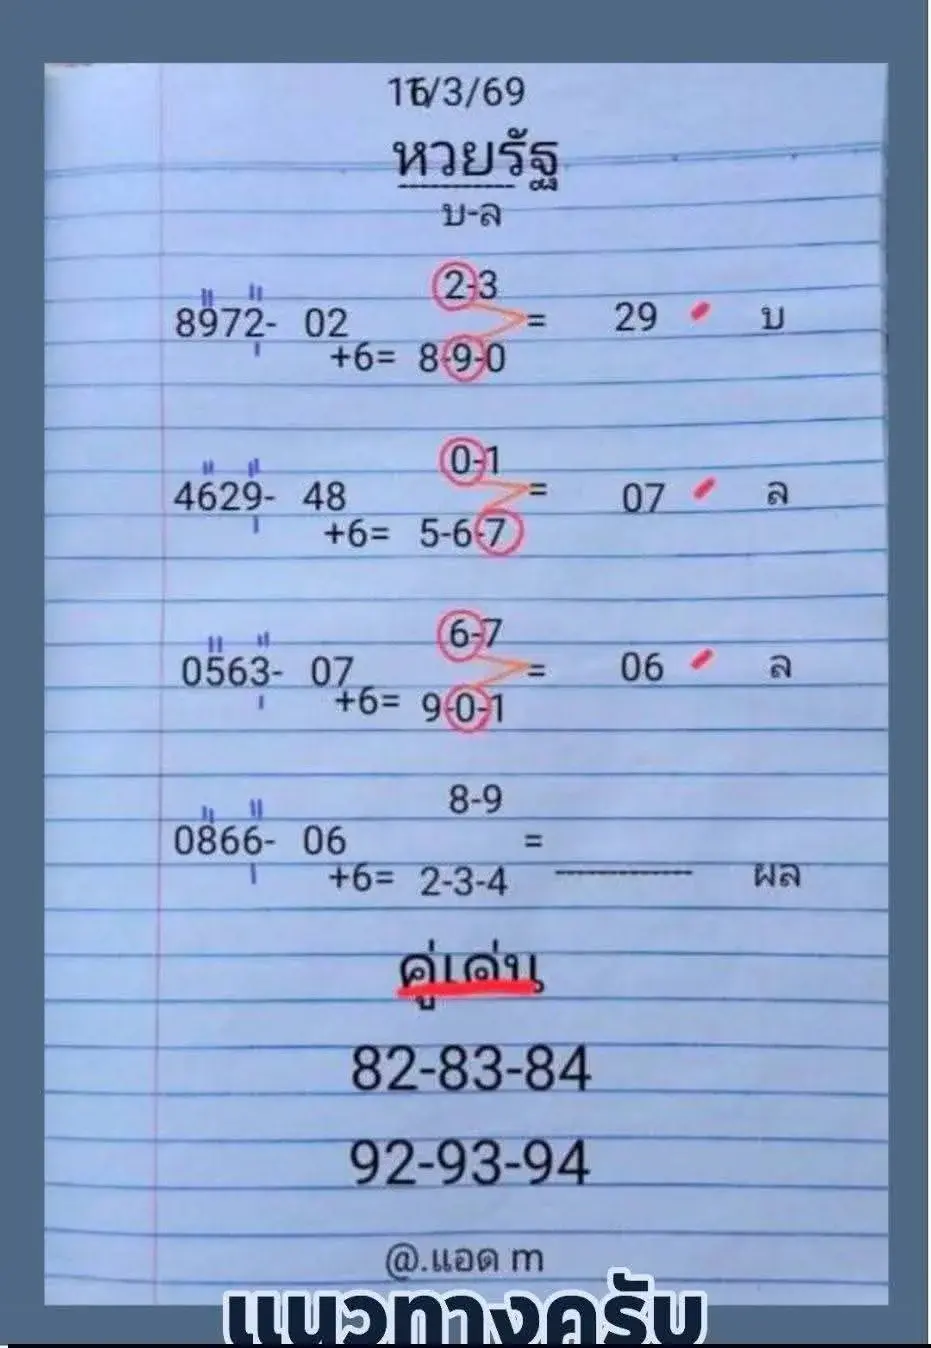 16/3/69
หวยรัฐ
บ-ล
2-3
8972- 02 = 29 บ
+6= 8-9-0
0-1
4629- 48 = 07 ล
+6= 5-6-7
6-7
0563- 07 = 06 ล
+6= 9-0-1
8-9
0866- 06 =
+6= 2-3-4 ------------- ผล
คู่เด่น
82-83-84
92-93-94
@.แอด m
แนวทางครับ